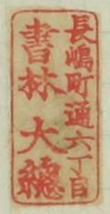 長嶋町通六丁目
書林大𦾔